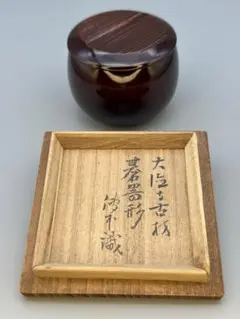 大徳寺古材
碁器形
不識